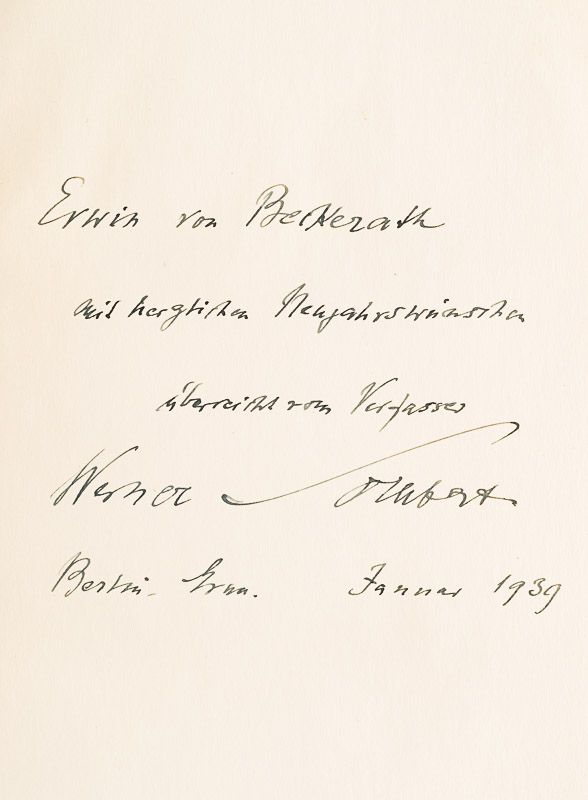 Erwin von Beckerath
mit herzlichen Neujahrswünschen
überreicht vom Verfasser
Werner Sombart
Berlin-Grun. Januar 1939